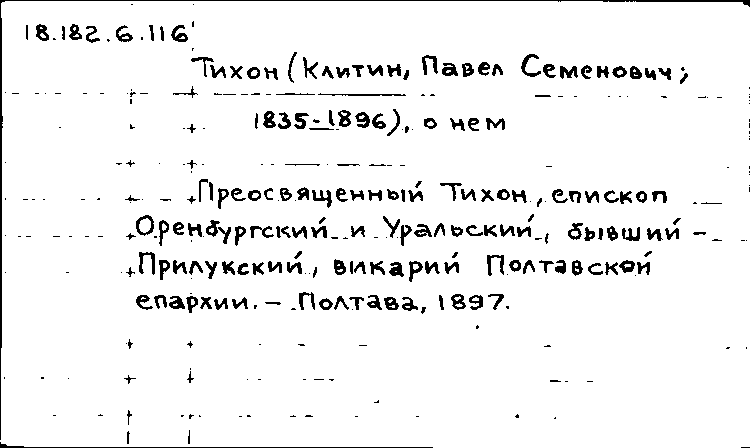 18.182.6.116
Тихон (Клитин, Павел Семенович;
1835-1896), о нем
Преосвященный Тихон, епископ
Оренбургский и Уральский, бывший -
Прилукский, викарий Полтавской
епархии. - Полтава, 1897.